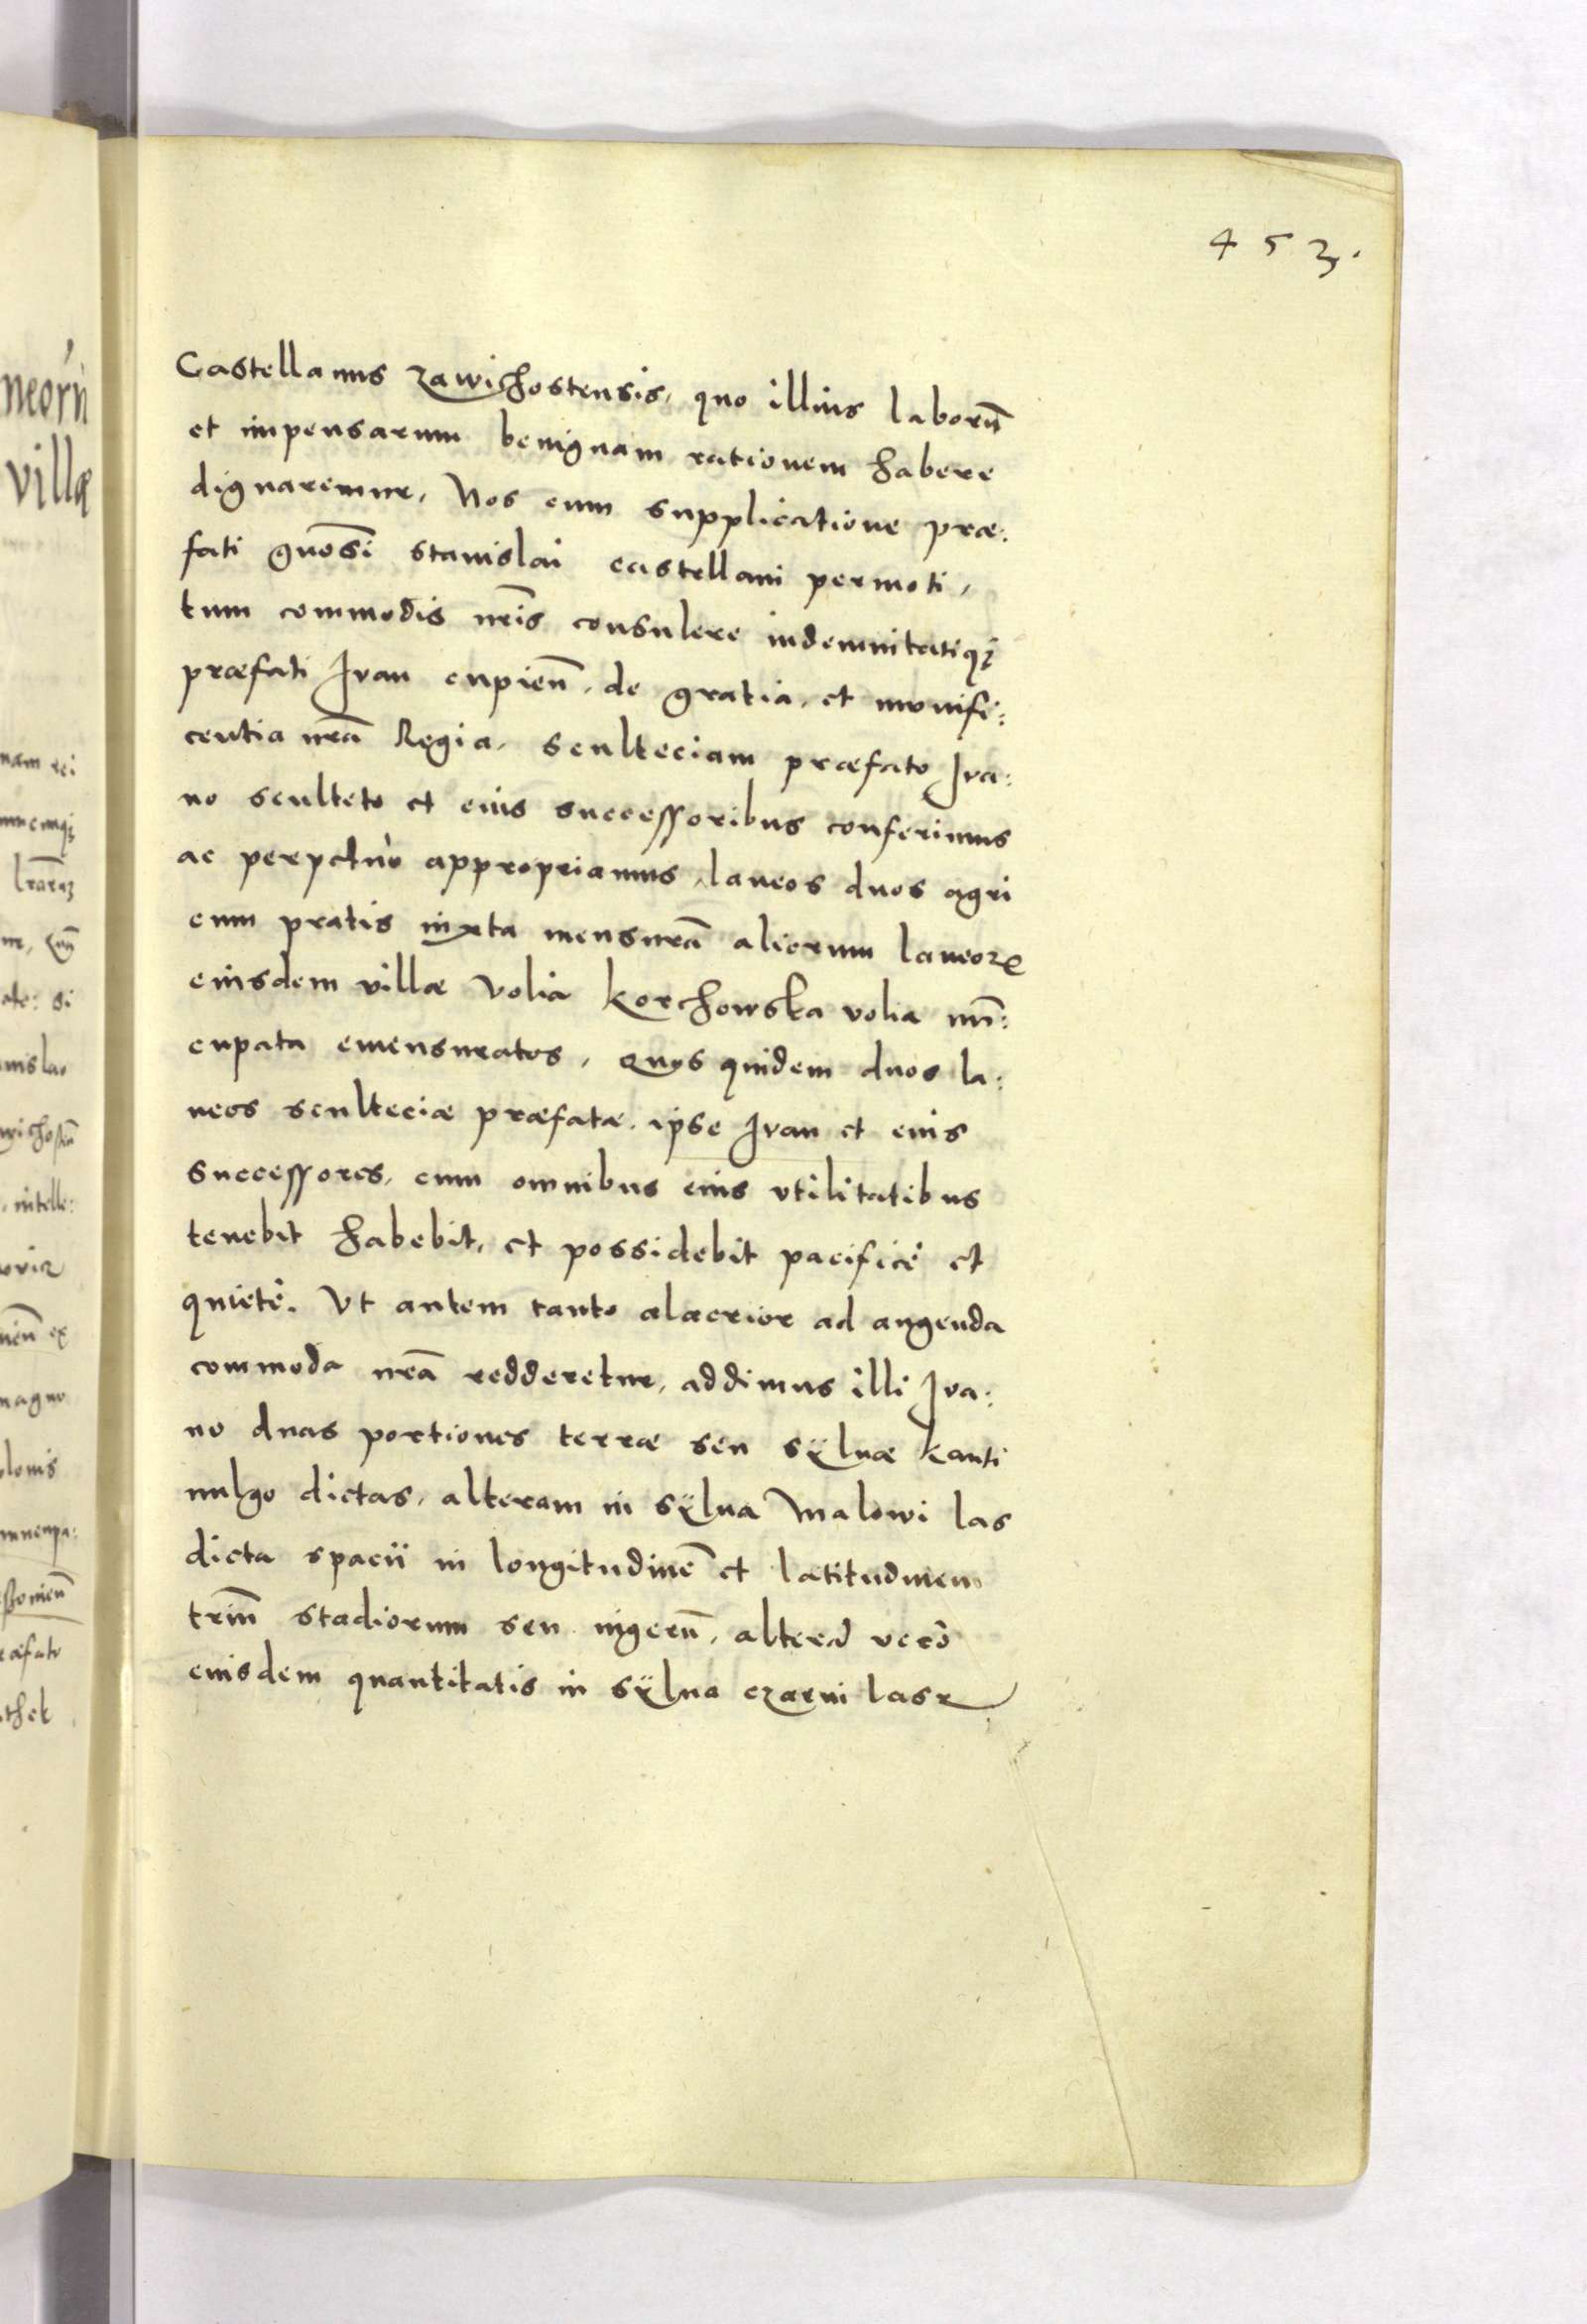 453.
Castellanus Zawichostensis, quo illius laborũ
et impensarum benignam rationem habere
dignaremur, Nos cum supplicatione præ:
fati gnõsi Stanislai castellani permoti,
tum commodis nr̃is consulere indemnitatiqꝫ
præfati Ivan cupień, de gratia, et munifi:
centia nr̃a Regia, Sculteciam præfato Iva:
no sculteto et eius successoribus conferimus
ac perpetuò appropriamus, laneos duos agri
cum pratis iuxta mensurã aliorum laneorꝫ
eiusdem villæ Volia Korchowska volia nũ:
cupata emensuratos, Quos quidem duos la:
neos sculteciæ præfatæ, ipse Ivan et eius
successores, cum omnibus eius vtilitatibus
tenebit habebit, et possidebit pacificè et
quietè. Vt autem tanto alacrior ad augenda
commoda nr̃a redderetur, addimus illi Iva:
no duas portiones terræ seu sÿluæ kanti
uulgo dictas, alteram in sÿlua Malowi las
dicta spacii in longitudinẽ et latitudinem
triũ stadiorum seu iugerũ, alterã verò
eiusdem quantitatis in sÿlua czarni lasz
neorũ
villæ
nam rei
ate: si
nislao
intelle:
magno
olonis
mnenpa:
ræfato